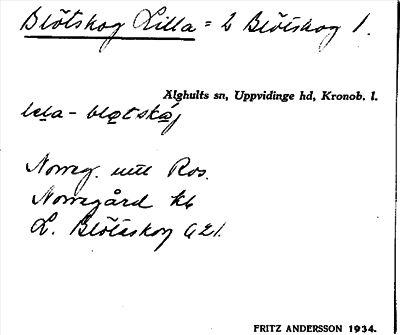 Blötskog Lilla = L Blötskog 1.
Älghults sn, Uppvidinge hd, Kronob. l.
lɩla - bløtskɷ́g
Norreg. utll Ros.
Norregård kb
L. Blötskog G 21.
FRITZ ANDERSSON 1934.